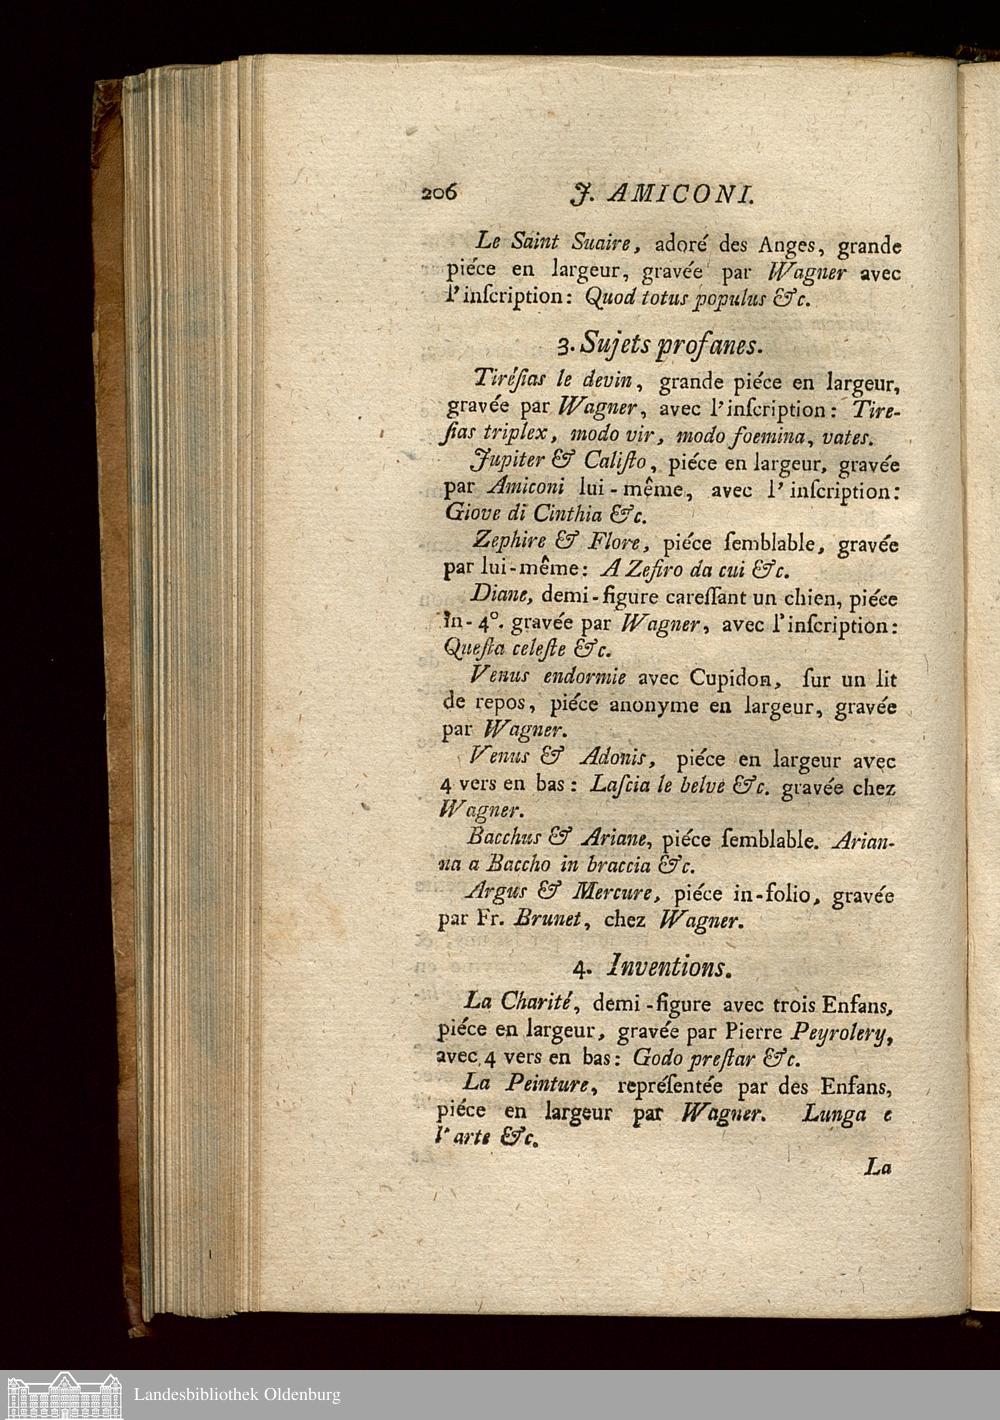 206 J. AMICONI.
Le Saint Suaire, adoré des Anges, grande
piéce en largeur, gravée par Wagner avec
l'inſcription: Quod totus populus &c.
3. Sujets profanes.
Tiréſias le devin, grande piéce en largeur,
gravée par Wagner, avec l'inſcription: Tire-
ſias triplex, modo vir, modo foemina, vates.
Jupiter & Caliſto, piéce en largeur, gravée
par Amiconi lui-même, avec l'inſcription:
Giove di Cinthia &c.
Zephire & Flore, piéce ſemblable, gravée
par lui-même: A Zefiro da cui &c.
Diane, demi-figure careſſant un chien, piéce
in-4°. gravée par Wagner, avec l'inſcription:
Queſta celeſte &c.
Venus endormie avec Cupidon, ſur un lit
de repos, piéce anonyme en largeur, gravée
par Wagner.
Venus & Adonis, piéce en largeur avec
4 vers en bas: Laſcia le belve &c. gravée chez
Wagner.
Bacchus & Ariane, piéce ſemblable. Arian-
na a Baccho in braccia &c.
Argus & Mercure, piéce in-folio, gravée
par Fr. Brunet, chez Wagner.
4. Inventions.
La Charité, demi-figure avec trois Enfans,
piéce en largeur, gravée par Pierre Peyrolery,
avec 4 vers en bas: Godo preſtar &c.
La Peinture, repréſentée par des Enfans,
piéce en largeur par Wagner. Lunga e
l'arte &c.
La
Landesbibliothek Oldenburg